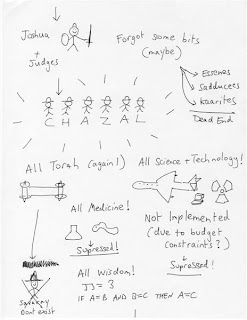 Joshua
+
Judges
Forgot some bits
(maybe)
Essenes
Sadducees
Kaarites
Dead End
C H A Z A L
All Torah (again!)
All Science + Technology!
All Medicine!
Supressed!
Not Implemented
(due to budget
constraints?)
Supressed!
All Wisdom!
π = 3
IF A=B AND B=C THEN A=C
Dont exist